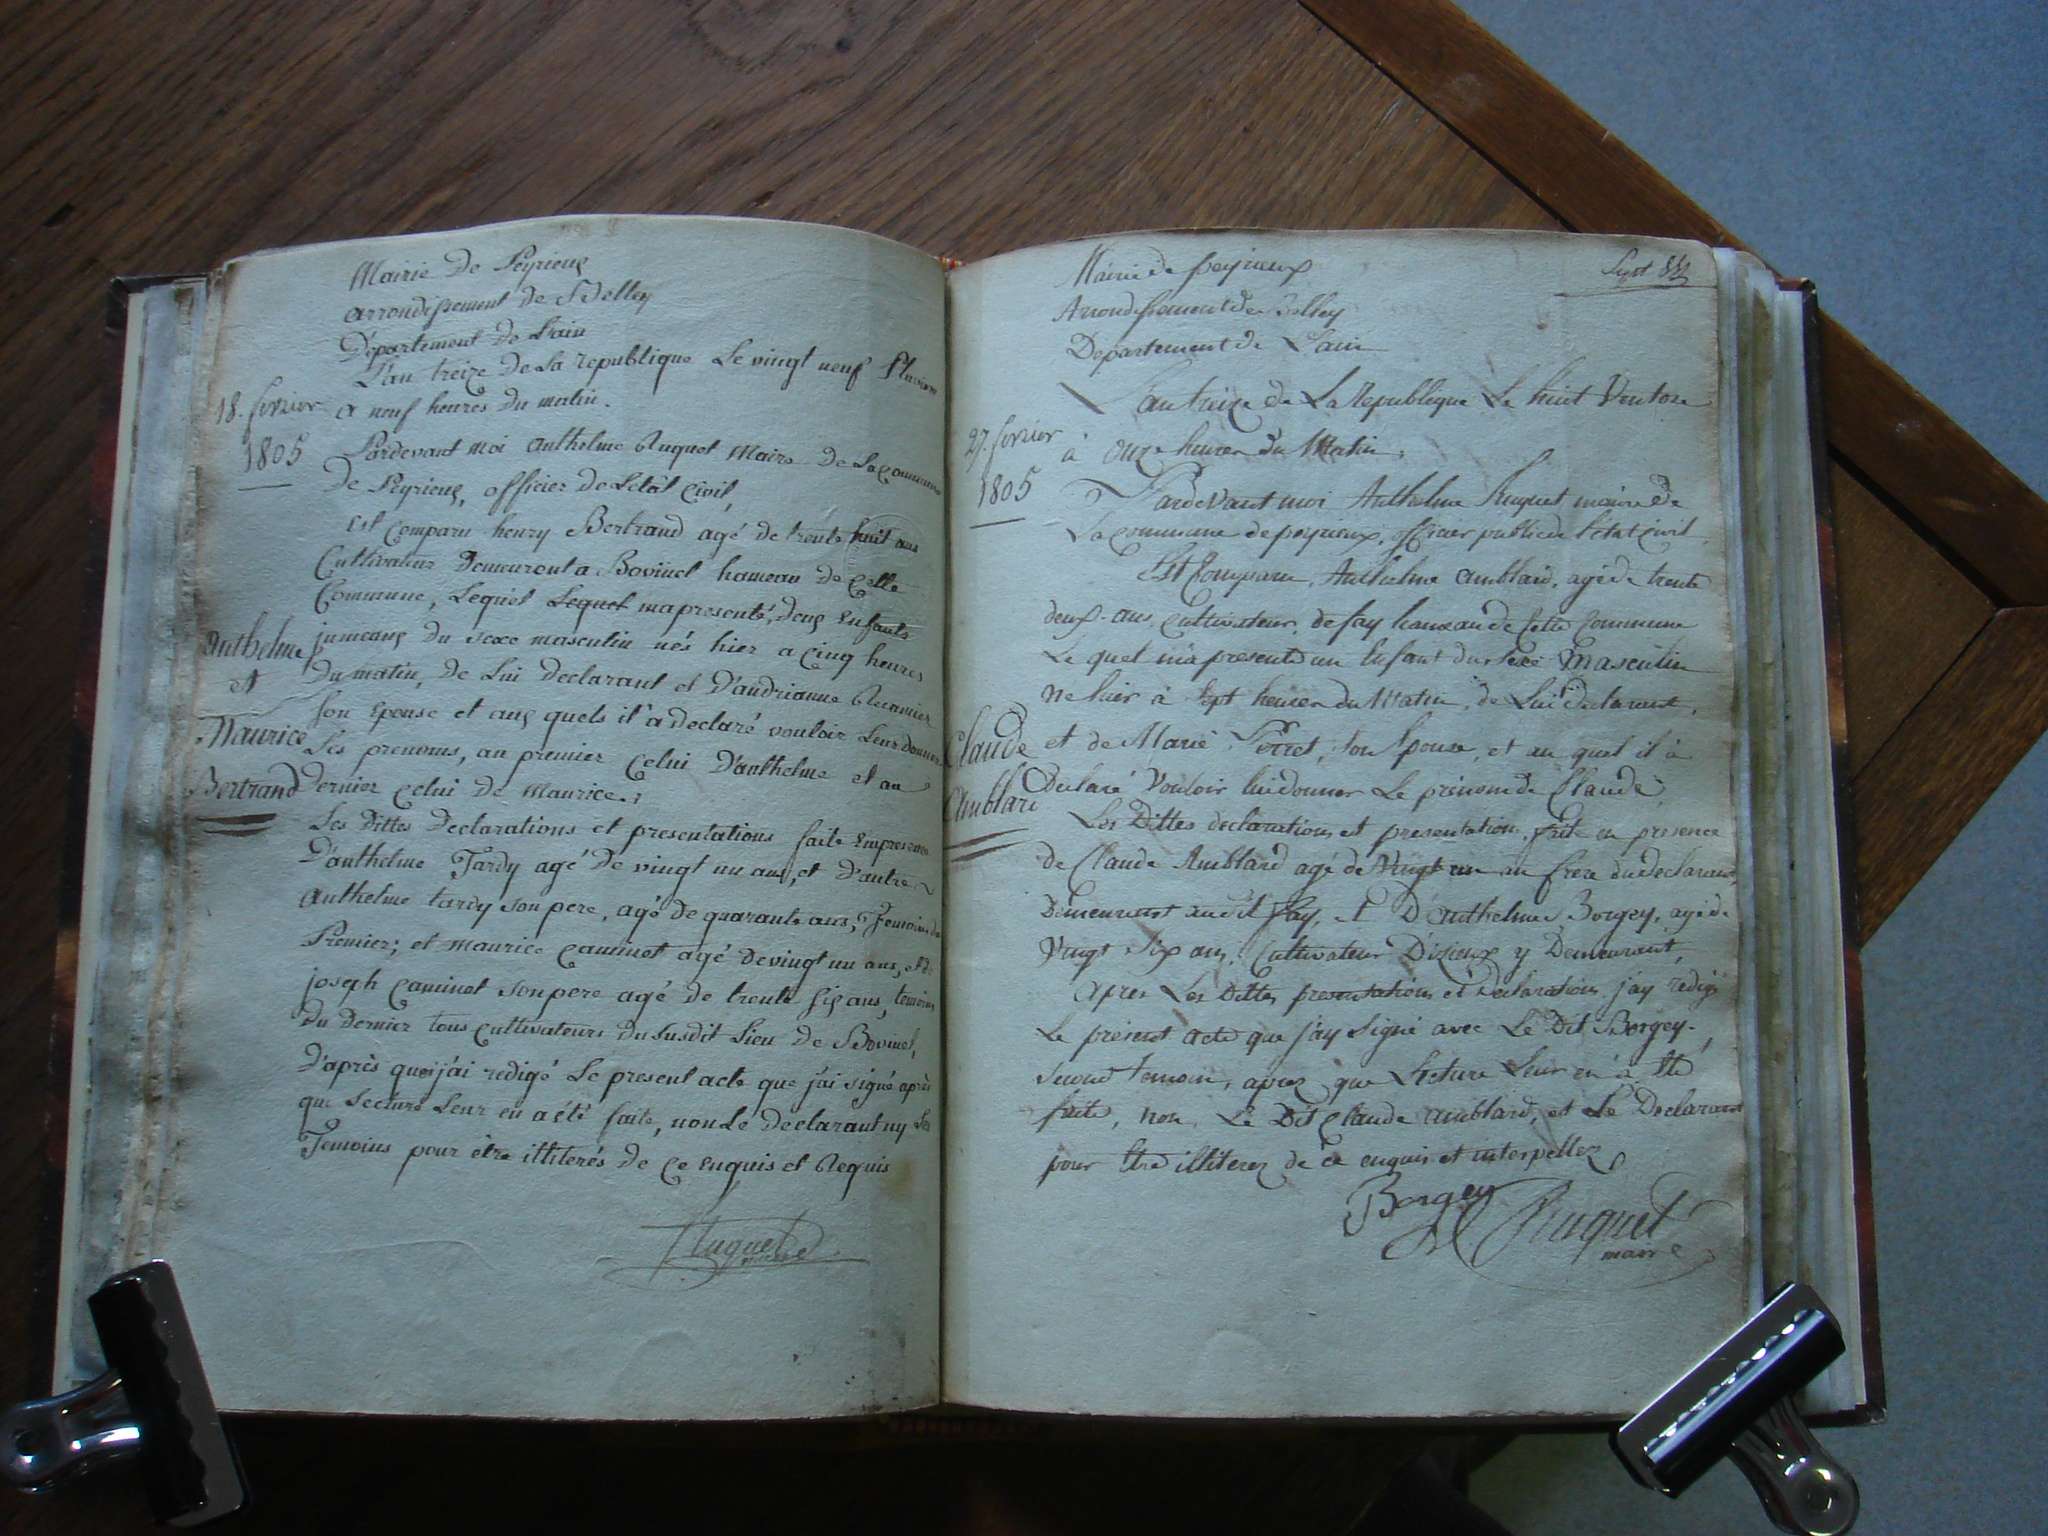 Mairie de Peyrieux
arrondissement de Belley
Département de L'ain
L'an treize de La republique Le vingt neuf Pluviose
18. fevrier
a neuf heures du matin.
1805
Pardevant moi anthelme Huguet Maire de La Commune
de Peyrieux, officier de Létat Civil,
Est Comparu henry Bertrand agé de trente huit ans
Cultivateur Demeurent a Bovinel hameau de Cette
Commune, Lequel Lequel ma presenté, deux Enfants
anthelme
jumeaux du sexe masculin nés hier a Cinq heures
et
Du matin, de Lui declarant et D'andrianne Recamier
Son Epouse et aux quels il a declaré vouloir Leur donner
Maurice
Les prenoms, au premier Celui D'anthelme et au
Bertrand
dernier Celui de maurice.
Les dittes Declarations et presentations faite En presence
D'anthelme Tardy agé de vingt un ans, et d'autre
anthelme tardy son pere, agé de quarante ans, Temoins du
Premier; et maurice Caminet agé de vingt un ans, et de
joseph Caminet son pere agé de trente six ans, temoins
du dernier tous Cultivateurs du susdit Lieu de Bovinel,
D'après quoi j'ai redigé Le present acte que j'ai signé après
que Lecture Leur en a été faite, non Le declarant ny Les
Temoins pour être illiterés de Ce Enquis et Requis
Huguet
Mairie de peyrieux
Arrondissement de Belley
Departement de L'ain
L'an treize de La Republique Le huit Ventose
27. fevrier
à onze heures du Matin,
1805
Pardevant moi Anthelme huguet maire de
La commune de peyrieux, officier public de l'état civil
Est Comparu, Anthelme amblard, agé de trente
deux ans, Cultivateur, de fay hameau de Cette Commune
Le quel m'a presenté un Enfant du sexe masculin
né hier à sept heures du Matin, de Lui declarant,
Claude
et de Marie Perret, son Epouse, et au quel il a
Declaré Vouloir lui donner Le prénom de Claude,
amblard
Les Dittes declarations et presentation, faite en presence
de Claude Amblard agé de Vingt un an frere du declarant,
Demeurant audit fay, et D'anthelme Borgey, agé de
Vingt Six ans, Cultivateur D'izieux y Demeurant,
Apres Les Dittes presentations et declaration j'ay redigé
Le présent acte que j'ay Signé avec Le Dit Borgey,
Second temoin, aprez que Lecture Leur en à Eté
faite, non Le Dit Claude amblard, et Le Declarant
pour Etre illiterez de ce enquis et interpellez
Borgey Huguet
maire